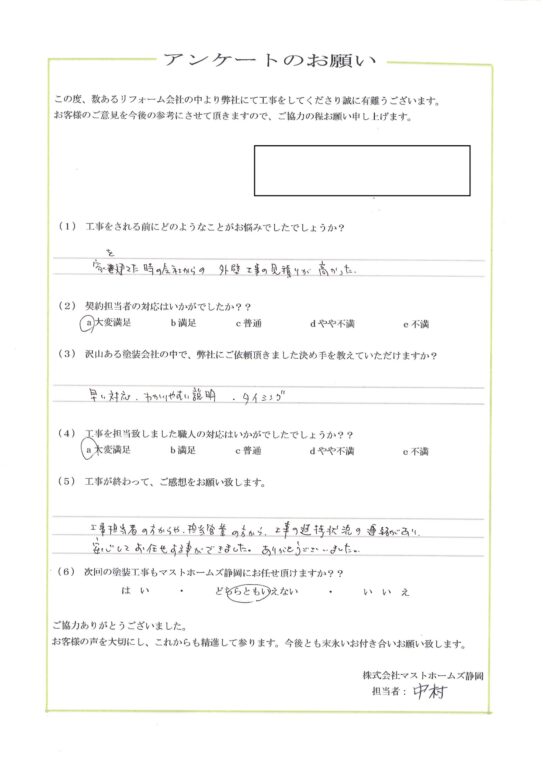 アンケートのお願い
この度、数あるリフォーム会社の中より弊社にて工事をしてくださり誠に有難うございます。
お客様のご意見を今後の参考にさせて頂きますので、ご協力の程お願い申し上げます。
(1) 工事をされる前にどのようなことがお悩みでしたでしょうか？
家を建てた時の会社からの 外壁工事の見積りが高かった.
(2) 契約担当者の対応はいかがでしたか？？
a大変満足 b満足 c普通 dやや不満 e不満
(3) 沢山ある塗装会社の中で、弊社にご依頼頂きました決め手を教えていただけますか？
早い対応 . わかりやすい説明 . タイミング
(4) 工事を担当致しました職人の対応はいかがでしたでしょうか？？
a大変満足 b満足 c普通 dやや不満 e不満
(5) 工事が終わって、ご感想をお願い致します。
工事担当者の方からや、担当営業の方から、工事の進捗状況の連絡があり、
安心してお任せする事ができました。ありがとうございました。
(6) 次回の塗装工事もマストホームズ静岡にお任せ頂けますか？？
はい ・ どちらともいえない ・ いいえ
ご協力ありがとうございました。
お客様の声を大切にし、これからも精進して参ります。今後とも末永いお付き合いお願い致します。
株式会社マストホームズ静岡
担当者：中村